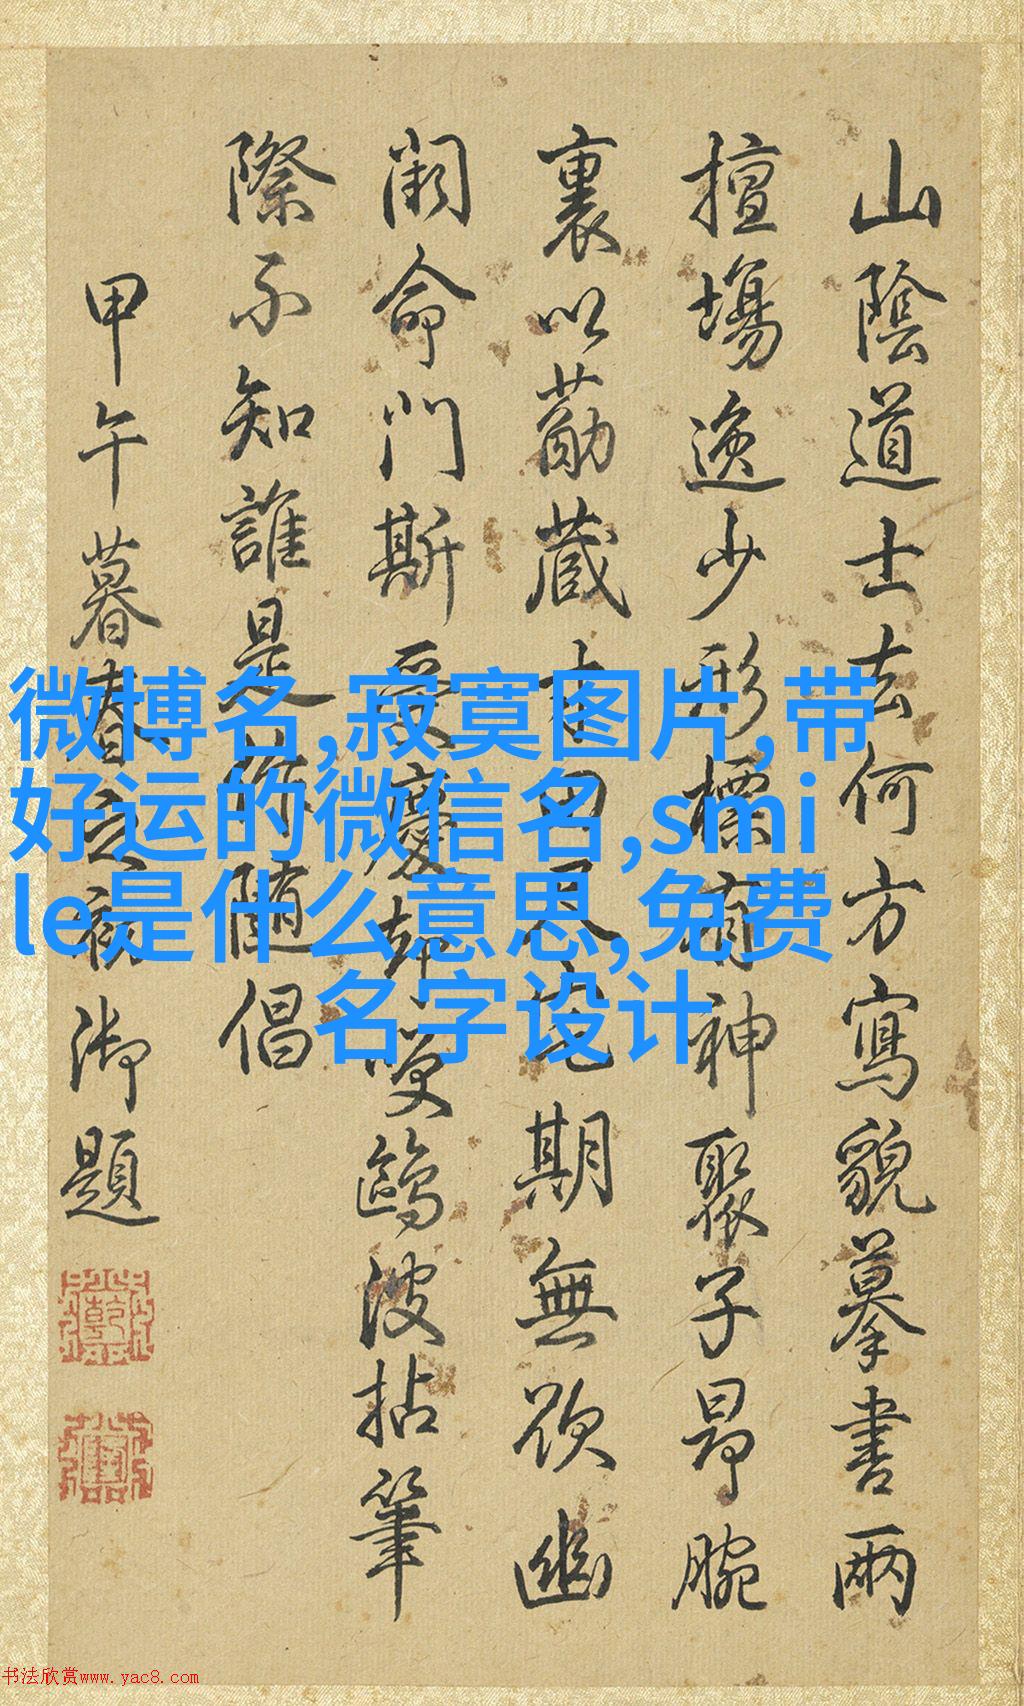 山陰道士去何方寫貌摹書兩
擅場逸少形標神聚子昂腕
裏以藏期無欲幽
命門斯受慶却鷗波拈筆
際不知誰是隨倡
甲午暮春之初御題
微博名,寂寞图片,带
好运的微信名,smi
le是什么意思,免费
名字设计
书法欣赏www.yac8.com